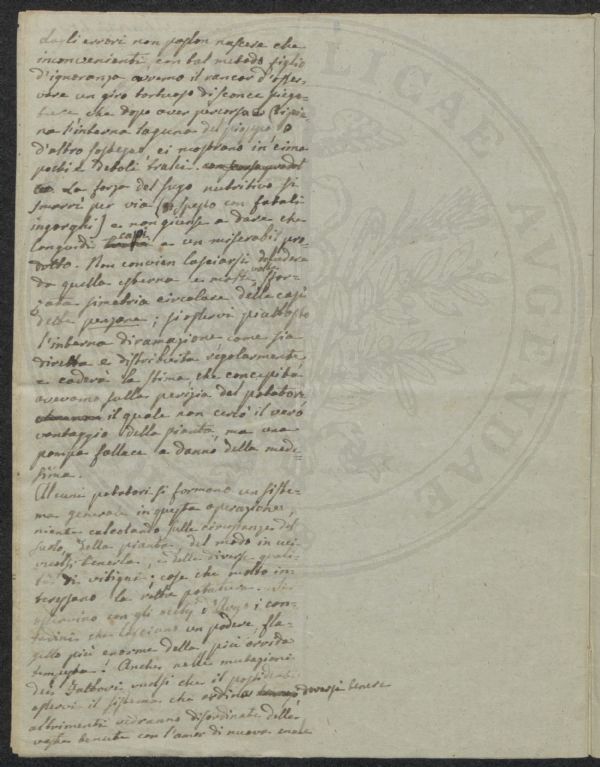 dagli errori non posson nascere che
inconvenienti, con tal metodo figlio
d'ignoranza avremo il rancor d'osser-
vare un giro tortuoso di sconce piega-
ture che dopo aver percorsa
na l'interna laguna del pioppo, o
d'altro sostegno, ci mostrano in cima
pochi e deboli tralci.
La forza del sugo nutritivo si
smarrì per via (e spesso con fatali
ingorghi) e non giunse a dare che
languidi capi e un miserabil pro-
dotto. Non convien lasciarsi deludere
da quella esterna e molte volte sfor-
zata simetria circolare delle così
dette penzane; si osservi piuttosto
l'interna diramazione come sia
diretta e distribuita regolarmente
e caderà la stima, che concepita
avevamo sulla perizia del potatore
il quale non cercò il vero
vantaggio della pianta, ma una
pompa fallace a danno della mede-
sima.
Alcuni potatori si formano un siste-
ma generale in questa operazione,
niente calcolando sulle circostanze del
suolo, della pianta, del modo in cui
vuolsi tenerla, e delle diverse quali-
tà di vitigni; cose che molto in-
teressano la retta potatura. Si
osservino con gli occhi d'Argo i con-
tadini che lasciano un podere, fla-
gello più enorme della più orrida
tempesta! Anche nelle mutazioni
dei Fattori vuolsi che il possidente
osservi il sistema che ordina doversi tenere
altrimenti vedranno disordinate delle
vaste tenute con l'amor di nuova